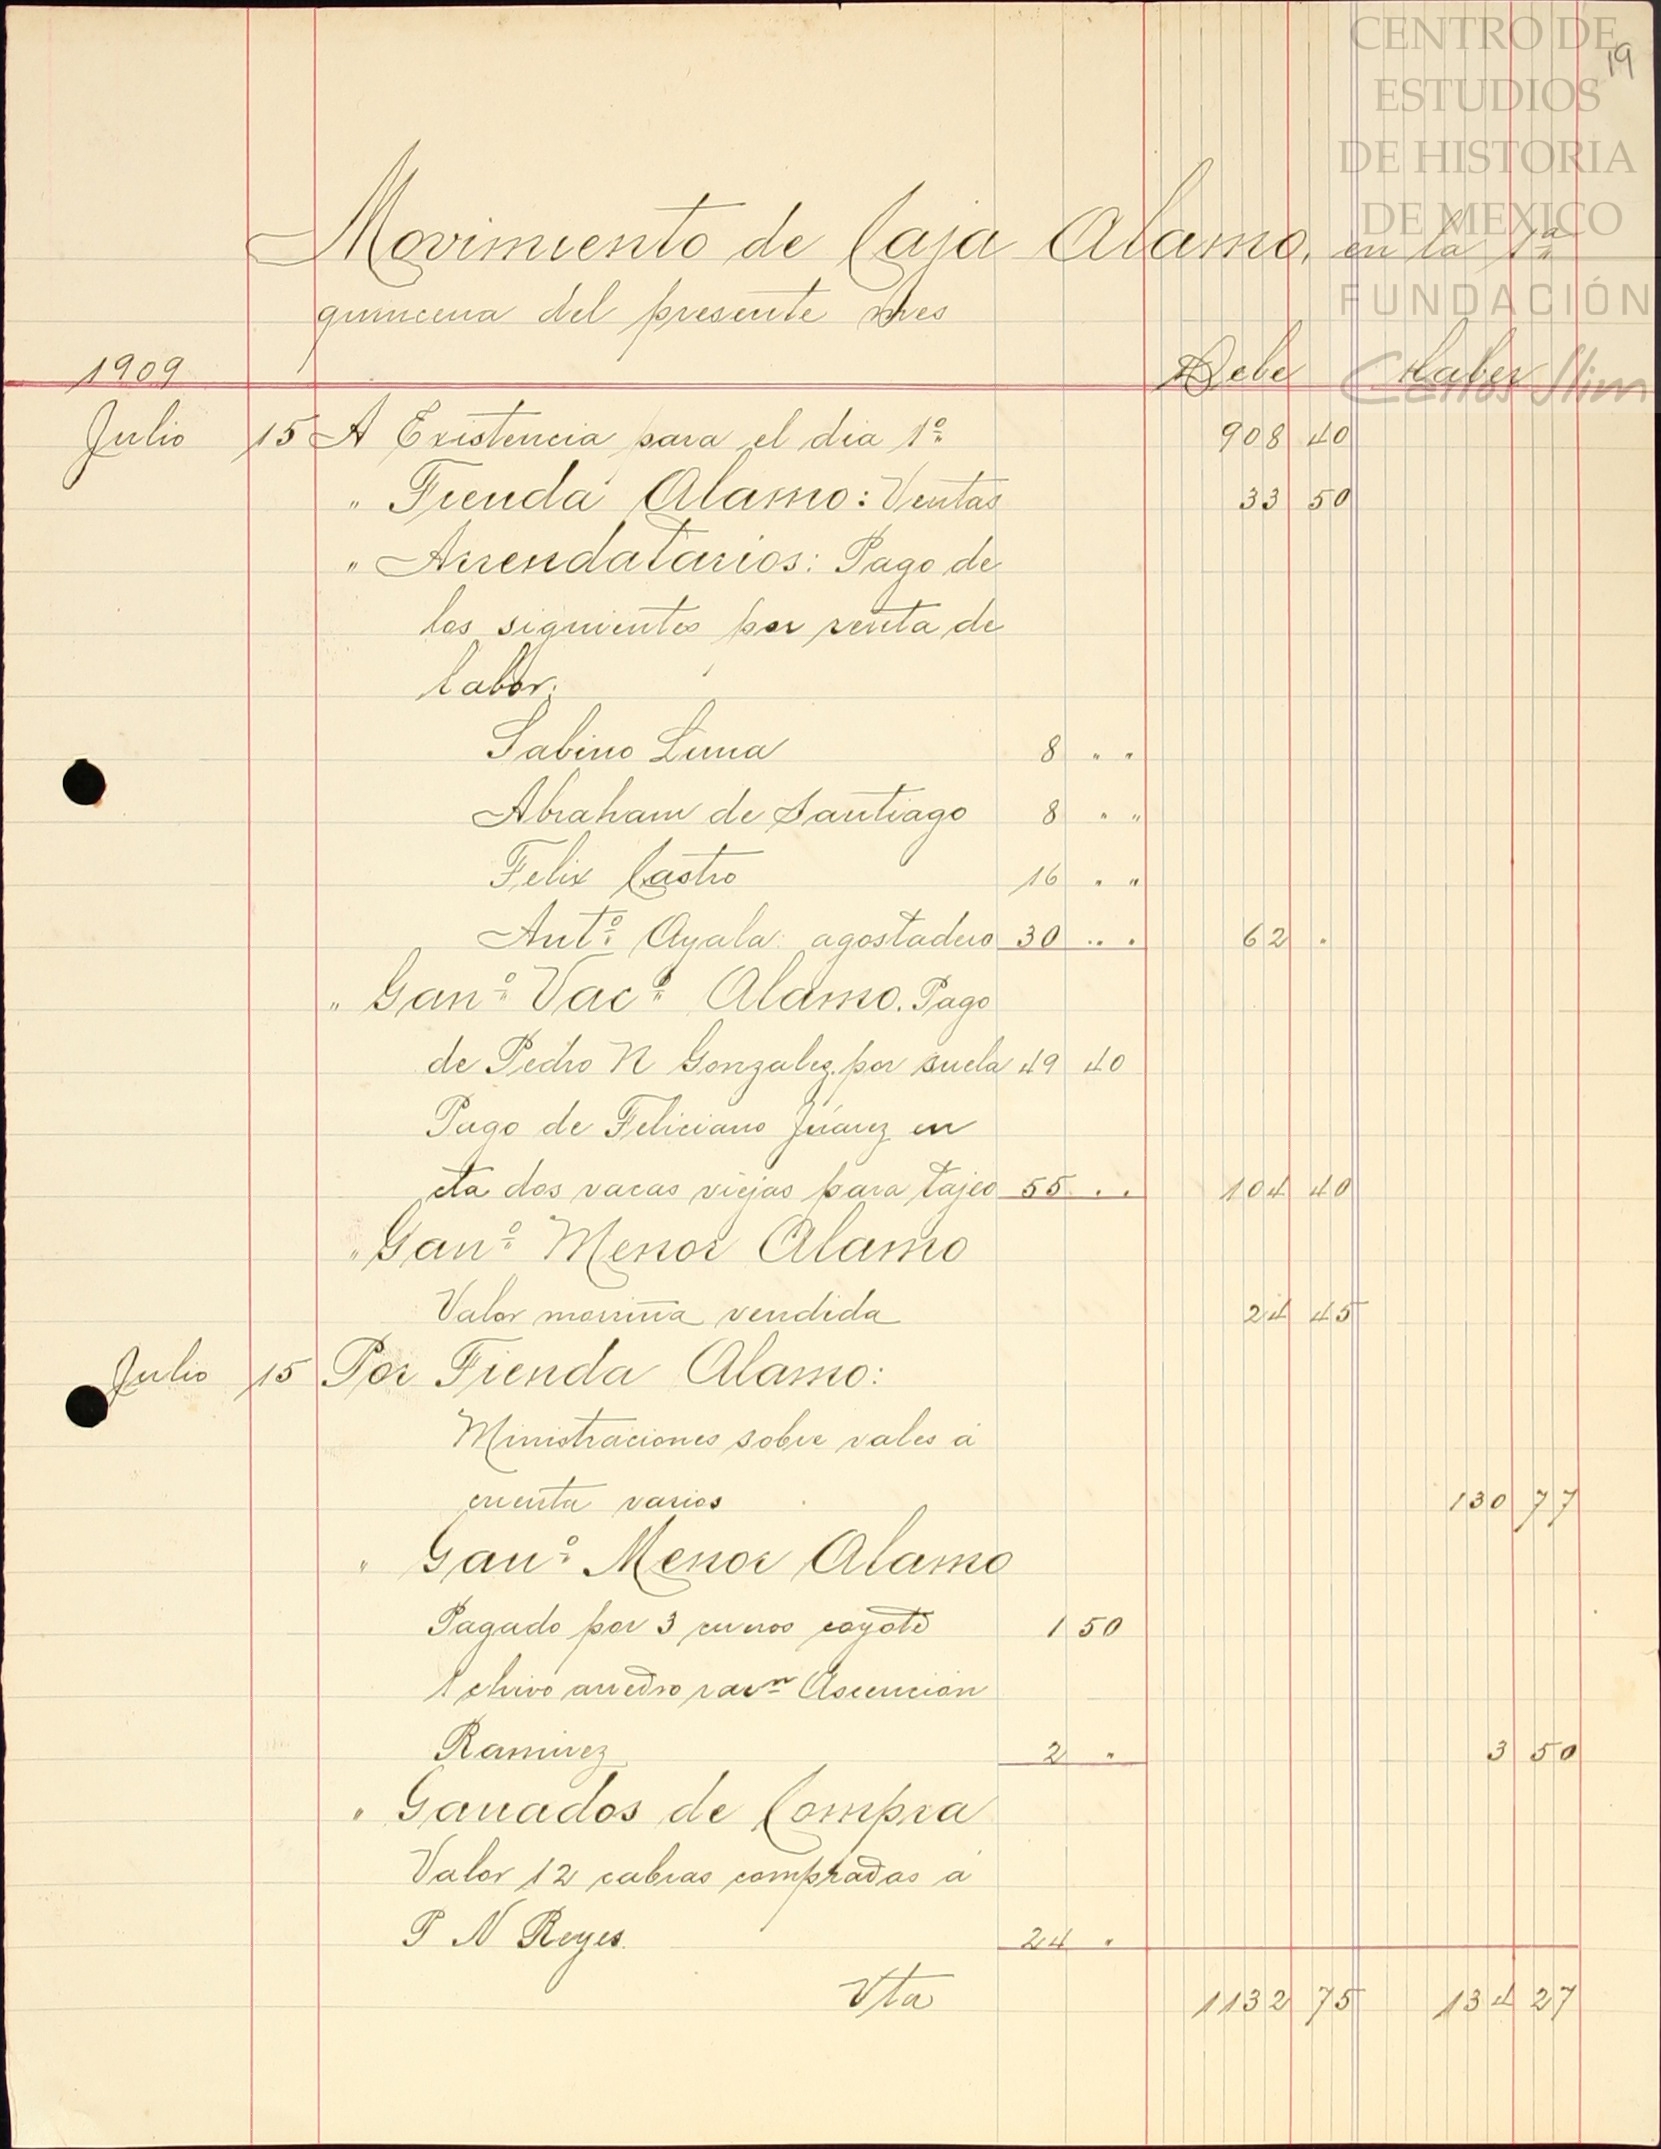 CENTRO DE
ESTUDIOS
DE HISTORIA
DE MEXICO
FUNDACIÓN
Carlos Slim
19
Movimiento de Caja Alamo, en la 1ª
quincena del presente mes
1909 Debe Haber
Julio 15 A Existencia para el dia 1º 908 40
" Tienda Alamo: Ventas 33 50
" Arrendatarios: Pago de
los siguientes por renta de
labor:
Sabino Luna 8 " "
Abraham de Santiago 8 " "
Felix Castro 16 " "
Antº Ayala: agostadero 30 " " 62 "
" Ganº Vacº Alamo. Pago
de Pedro N Gonzalez por suela 49 40
Pago de Feliciano Juarez en
cta dos vacas viejas para tajeo 55 " " 104 40
" Ganº Menor Alamo
Valor morriña vendida 24 45
Julio 15 Por Tienda Alamo:
Ministraciones sobre vales á
cuenta varios 130 77
" Ganº Menor Alamo
Pagado por 3 cueros coyote 1 50
1 chivo Ascencion
Ramirez 2 " 3 50
" Ganados de Compra
Valor 12 cabras compradas á
P N Reyes. 24 "
Vta 1132 75 134 27